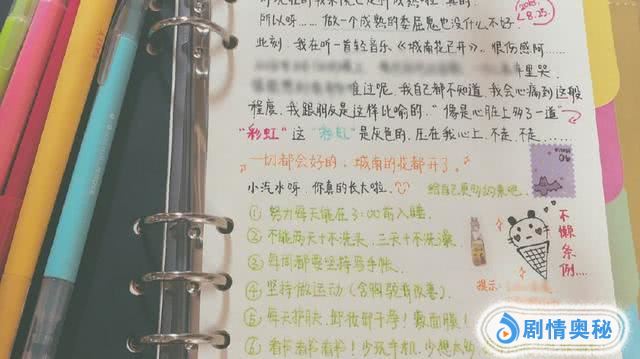 所以呀……做一个成熟的委屈鬼也没什么不好.
2018.
8.25.
此刻.我在听一首轻音乐《城南花已开》.很伤感阿……
车里哭.
难过呢.我自己都不知道.我会心痛到这般
程度.我跟朋友是这样比喻的."像是心脏上多了一道"
"彩虹"这"彩虹"是灰色的.压在我心上.不走.不走.……
一切都会好的.城南的花都开了.
小汽水呀.你真的长大啦.
给自己更好的未来吧.
① 努力每天能在3:00前入睡.
② 不能两天十不洗头.三天十不洗澡.
③ 每周都要坚持写手帐.
④ 坚持做运动(含
⑤ 每天护肤.卸妆
敷面膜!
⑥ 看书看书看书!少玩手机.少想
不懒条例…
提示:
剧情奥秘